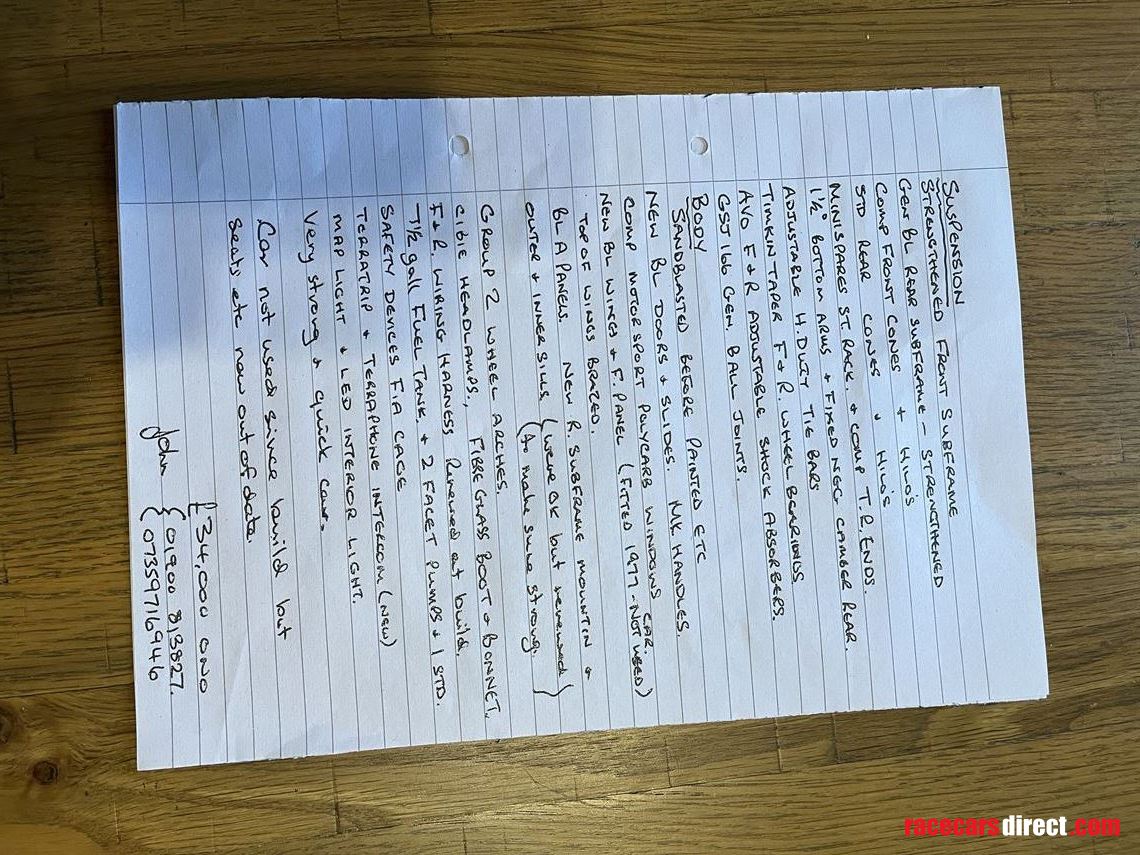 SUSPENSION
STRENGTHENED FRONT SUBFRAME
GEN BL REAR SUBFRAME - STRENGTHENED
COMP FRONT CONES + HILO'S
STD REAR CONES + HILO'S
MINISPARES ST RACK. + COMP T.R. ENDS.
1½° BOTTOM ARMS + FIXED NEG CAMBER REAR.
ADJUSTABLE H. DUTY TIE BARS
TIMKIN TAPER F & R. WHEEL BEARINGS
AVO F & R ADJUSTABLE SHOCK ABSORBERS.
GSJ 166 GEN BALL JOINTS.
BODY
SANDBLASTED BEFORE PAINTED ETC
NEW BL DOORS & SLIDES. MK HANDLES.
COMP MOTORSPORT POLYCARB WINDOWS CAR.
NEW BL WINGS & F. PANEL (FITTED 1977 - NOT USED)
TOP OF WINGS BRAZED.
BL A PANELS. NEW R. SUBFRAME MOUNTIN &
OUTER & INNER SILLS (were OK but renewed)
(to make sure strong.)
GROUP 2 WHEEL ARCHES.
CIBIE HEADLAMPS., FIBREGLASS BOOT & BONNET.
F & R. WIRING HARNESS Renewed at build.
7½ gall FUEL TANK. + 2 FACET PUMPS & 1 STD.
SAFETY DEVICES FIA CAGE
TERRATRIP & TERRAPHONE INTERCOM (NEW)
MAP LIGHT & LED INTERIOR LIGHT.
Very strong & quick car.
Car not used since build but
Seats etc now out of date
£34,000 ONO
John { 01900 813827.
( 07359716946
racecarsdirect.com